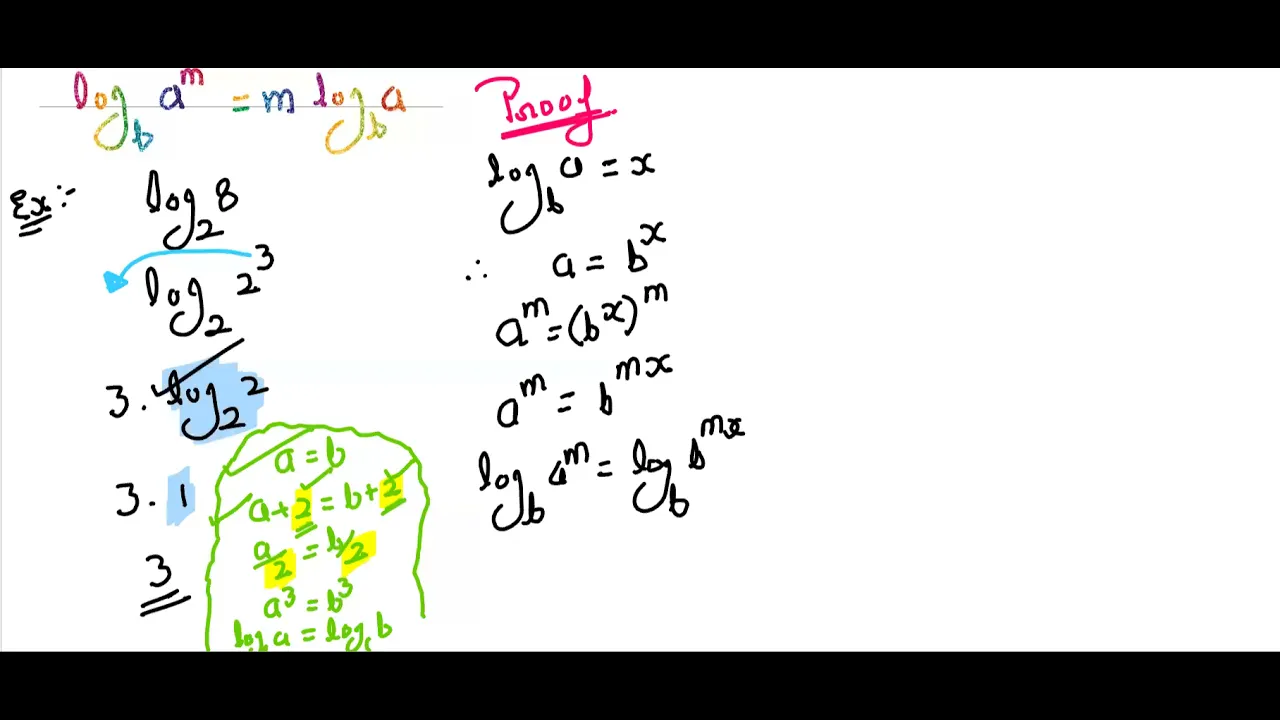 log_b a^m = m log_b a
Ex :-
log_2 8
log_2 2^3
3 . log_2 2
3 . 1
3
a = b
a + 2 = b + 2
a/2 = b/2
a^3 = b^3
log_b a = log_b b
Proof
log_b a = x
∴ a = b^x
a^m = (b^x)^m
a^m = b^mx
log_b a^m = log_b b^mx